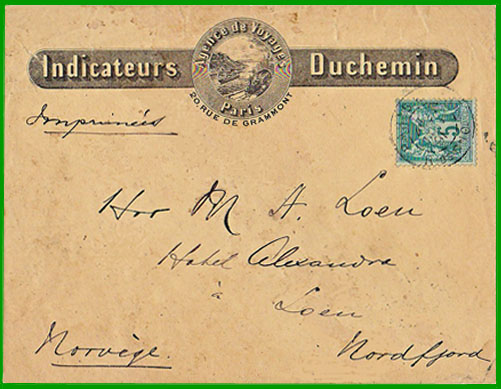 Agence de Voyages
Indicateurs Duchemin
Paris
20, RUE DE GRAMMONT
Imprimées
5
Herr M A. Loen
Hotel Alexandra
à
Loen
Norvège. Nordfjord